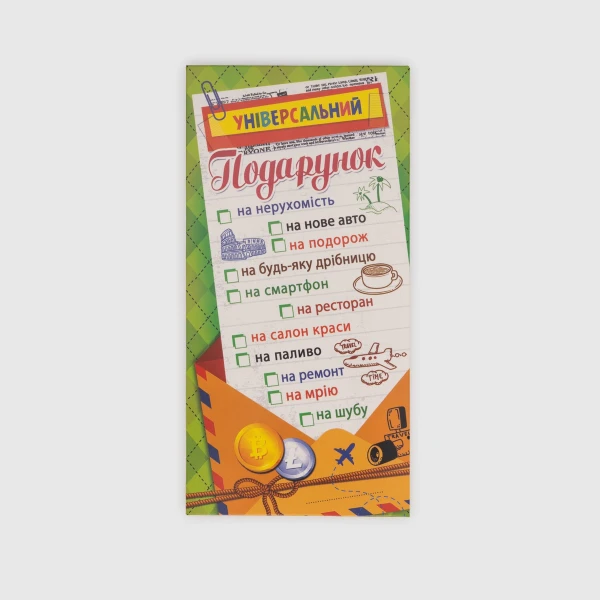 УНІВЕРСАЛЬНИЙ
Подарунок
на нерухомість
на нове авто
на подорож
на будь-яку дрібницю
на смартфон
на ресторан
на салон краси
на паливо
TRAVEL
на ремонт
TIME
на мрію
на шубу
TRAVEL